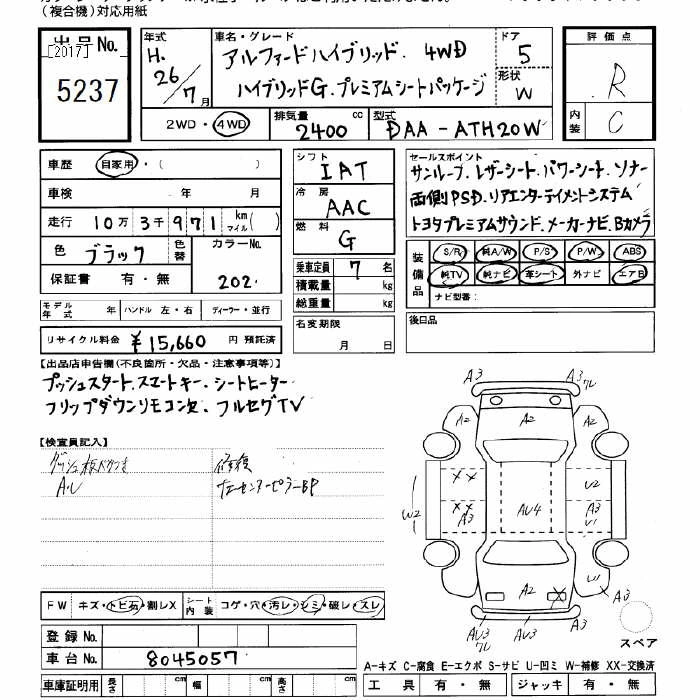 (複合機)対応用紙
出品No.
[2017]
5237
年式
H.
26/7月
車名・グレード
アルファードハイブリッド. 4WD
ハイブリッドG.プレミアムシートパッケージ
ドア
5
形状
W
評価点
R
内装
C
2WD・4WD
排気量
2400 cc
型式
DAA-ATH20W
車歴 自家用・( )
車検 年 月
走行 10万3千971 km マイル( )
色 ブラック
色替
カラーNo.
202.
保証書 有・無
シフト
IAT
冷房
AAC
燃料
G
乗車定員 7 名
積載量 kg
総重量 kg
セールスポイント
サンルーフ.レザーシート.パワーシート.ソナー
両側PSD.リアエンターテイメントシステム
トヨタプレミアムサウンド.メーカーナビ.Bカメラ
装備品
S/R 純A/W P/S P/W ABS
純TV 純ナビ 革シート 外ナビ エアB
ナビ型番:
モデル年式 年 ハンドル 左・右 ディーラー・並行
名変期限
月 日
後日品
リサイクル料金 ¥15,660 円 預託済
【出品店申告欄(不良箇所・欠品・注意事項等)】
プッシュスタート.スマートキー.シートヒーター
フリップダウンリモコン欠.フルセグTV
【検査員記入】
A・U
修復
A3
A3
フレ
A2
A2
A2
W2
XX
XX
A3
AU4
U2
A3
U1
A2
X
U1
A3
AU3
フレ
AU3
スペア
FW キズ・トビ石・割レX
シート内装 コゲ・穴・汚レ・シミ・破レ・スレ
登録No.
車台No. 8045057
車庫証明用 長さ cm 幅 cm 高さ cm
A-キズ C-腐食 E-エクボ S-サビ U-凹ミ W-補修 XX-交換済
工具 有・無 ジャッキ 有・無